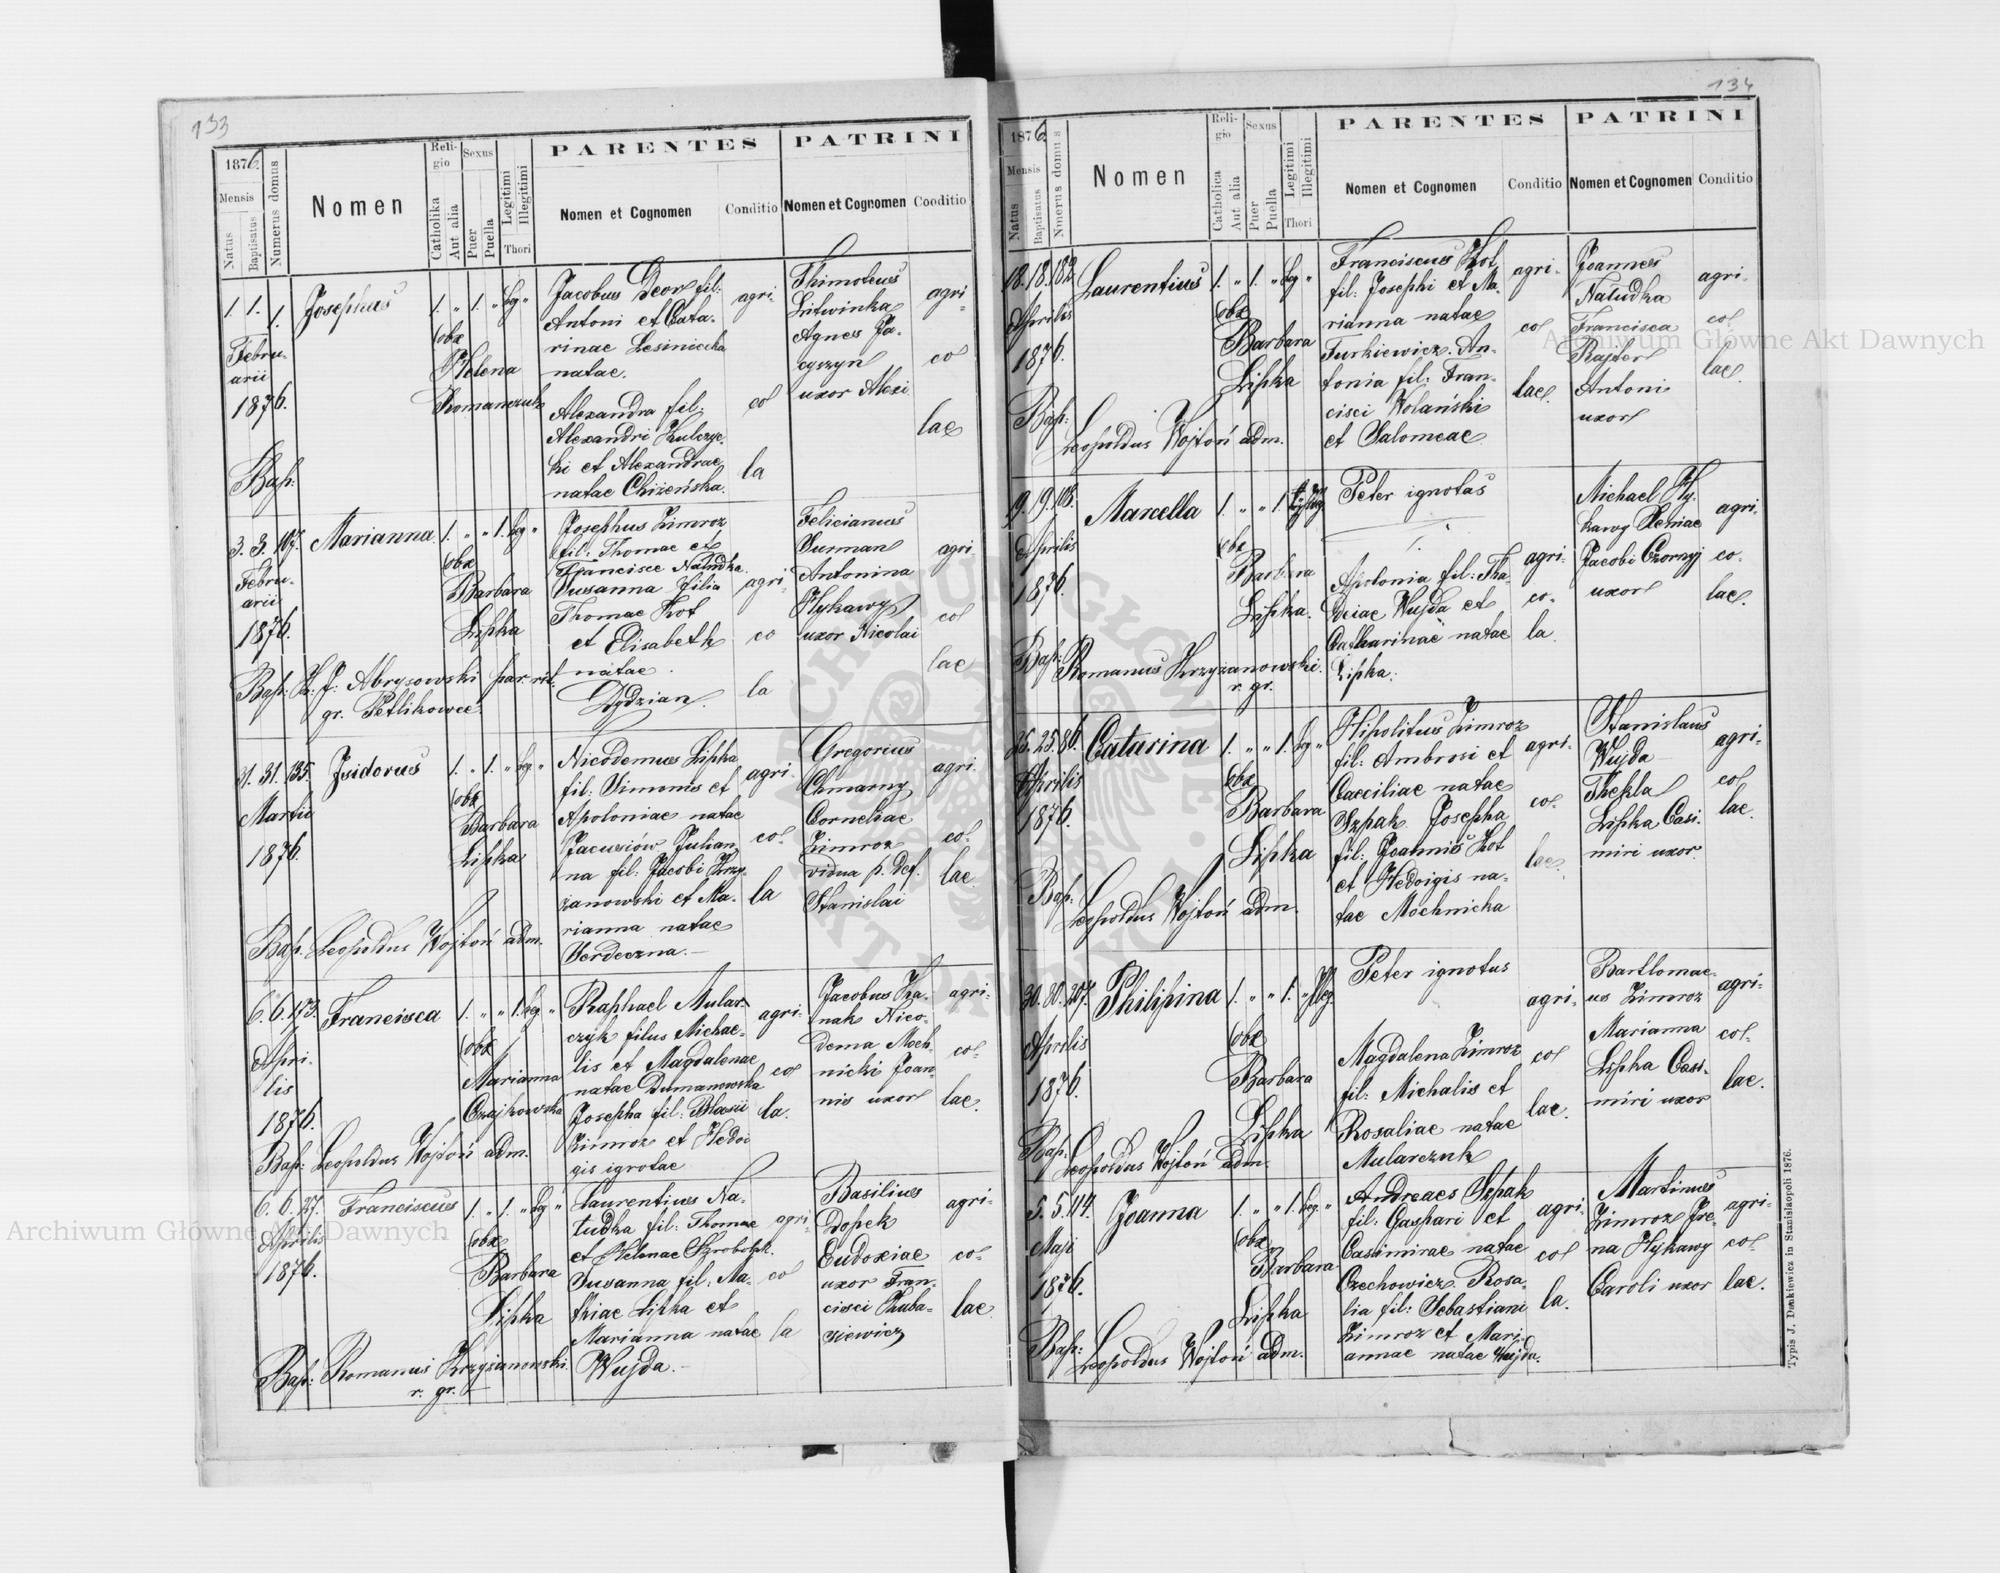 133
1876
Mensis
Natus
Baptisatus
Numerus domus
Nomen
Religio
Catholika
Aut alia
Sexus
Puer
Puella
Legitimi
Illegitimi
Thori
PARENTES
Nomen et Cognomen
Conditio
PATRINI
Nomen et Cognomen
Cooditio
1. 1. 1. Josephus 1. " 1. " leg "
Februarii
1876.
obx
Helena
Romanczuk
Jacobus Deor fil:
Antoni et Cata-
rinae Lesiniecka
natae.
Alexandra fil:
Alexandri Kulczyc-
ki et Alexandrae
natae Chiżeńska.
agri-
col
la
Thimoteus
Litwinka
Agnes
uxor Alexi
agri
co
lae
Bap:
3. 3. 107. Marianna 1. " " 1. leg "
Febru-
arii
1876.
obx
Barbara
Lipka
Josephus Zimroz
fil: Thomae et
Francisce Natudka.
Susanna filia
Thomae Kot
et Elisabeth
natae
Dydzian.
agri-
co
la
Felicianus
Surman
Antonina
Hykawy
uxor Nicolai
agri
col
lae
Bap: J: Abrysowski par. rit.
gr. Petlikowce.
31. 31. 135. Isidorus 1. " 1. " leg. "
Martii
1876.
obx
Barbara
Lipka
Nicodemus Lipka
fil: Simonis et
Apoloniae natae
Jacusiów Julian-
na fil: Jacobi Krzy-
żanowski et Ma-
rianna natae
Serdeczna.—
agri-
col-
la
Gregorius
Chmarny
Corneliae
Zimroz
vidua p. def.
Stanislai
agri.
col-
lae
Bap. Leopoldus Wojtoń adm.
6. 6. 173. Francisca 1. " " 1. leg "
Apri-
lis
1876.
obx
Marianna
Czajkowska
Raphael Mular-
czyk filus Michae-
lis et Magdalenae
natae Dumanowska
Josepha fil: Blasii
Zimroz et Hedvi
gis igrotae
agri-
col
la.
Jacobus Ka-
nak Nico-
dema Moch-
nicki Joan-
nis uxor
agri-
co-
lae.
Bap: Leopoldus Wojtoń adm.
6. 6. 27. Franciscus 1. " 1. " leg "
Aprilis
1876.
obx
Barbara
Lipka
Laurentius Na-
tudka fil: Thomae
et Helenae
Susanna fil: Ma-
thiae Lipka et
Marianna natae
Wujda.—
agri-
col
la
Basilius
Dopek
Eudoxiae
uxor Fran-
cisci Kuba-
siewicz
agri-
co-
lae
Bap: Romanus Krzyżanowski
r. gr.—
134
1876.
Mensis
Natus
Baptisatus
Nmerus domus
Nomen
Religio
Catholica
Aut alia
Sexus
Puer
Puella
Legitimi
Illegitimi
Thori
PARENTES
Nomen et Cognomen
Conditio
PATRINI
Nomen et Cognomen
Conditio
18. 18. 182 Laurentius 1. " 1. " leg "
Aprilis
1876.
obx
Barbara
Lipka
Franciscus Kot
fil: Josephi et Ma-
rianna natae
Turkiewicz. An-
tonia fil: Fran-
cisci Wolański
et Salomeae
agri-
col
lae.
Joannes
Natudka
Francisca
Rajter
Antoni
uxor
agri-
col
lae.
Bap:
Leopoldus Wojtoń adm.
19. 19. 108. Marcella 1. " " 1
Aprilis
1876.
obx
Barbara
Lipka.
Peter ignotus
Apolonia fil: Tha-
deiae Wujda et
Catharinae natae
Lipka.
agri-
co-
la.
Michael Hy-
kawy Xeniae
Jacobi Czornyj
uxor
agri-
co-
lae.
Bap: Romanus Krzyżanowski.
r. gr.
25. 25. 86. Catarina 1. " " 1. leg "
Aprilis
1876.
obx
Barbara
Lipka
Hipolitus Zimroz
fil: Ambrosi et
Caeciliae natae
Szpak. Josepha
fil: Joannis Kot
et Hedvigis na-
tae Mochnicka
agri-
col-
lae.
Stanislaus
Wujda
Thekla
Lipka Casi-
miri uxor.
agri-
col
lae.
Bap:
Leopoldus Wojtoń adm.
30. 30. 207. Philipina 1. " " 1. " illeg.
Aprilis
1876.
obx
Barbara
Lipka
Peter ignotus
Magdalena Zimroz
fil: Michalis et
Rosaliae natae
Mularczuk
agri-
col
lae.
Bartlomae-
us Zimroz
Marianna
Lipka Casi-
miri uxor
agri-
col-
lae.
Bap: Leopoldus Wojtoń adm.
5. 5. 114. Joanna 1. " " 1. leg. "
Maji
1876.
obx
Barbara
Lipka
Andreaes Szpak
fil: Gaspari et
Casimirae natae
Czechowicz. Rosa-
lia fil: Sebastiani
Zimroz et Mari-
annae natae Wujda.
agri-
col
la.
Martinus
Zimroz Ire-
na Hykawy
Caroli uxor
agri-
col-
lae.
Bap: Leopoldus Wojtoń adm.
Typis J. Dankiewicz in Stanislaopoli 1876.
Archiwum Główne Akt Dawnych
Archiwum Główne Akt Dawnych
ARCHIWUM GŁÓWNE AKT DAWNYCH